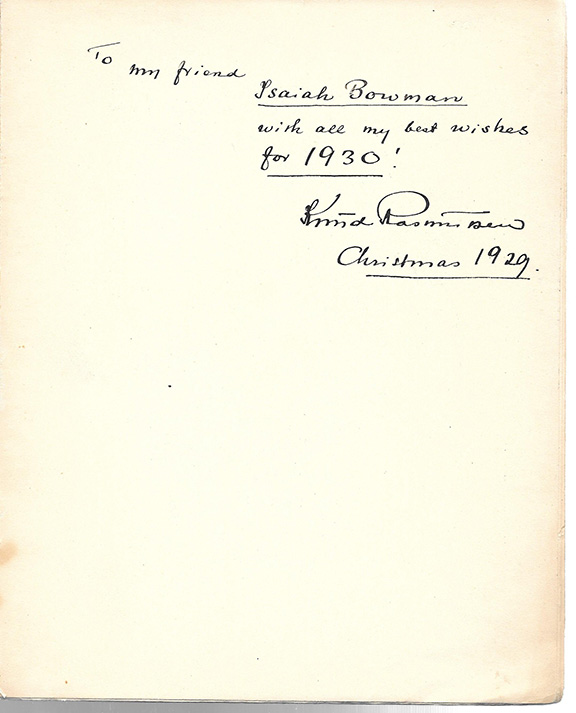 To my friend
Isaiah Bowman
with all my best wishes
for 1930!
Knud Rasmussen
Christmas 1929.